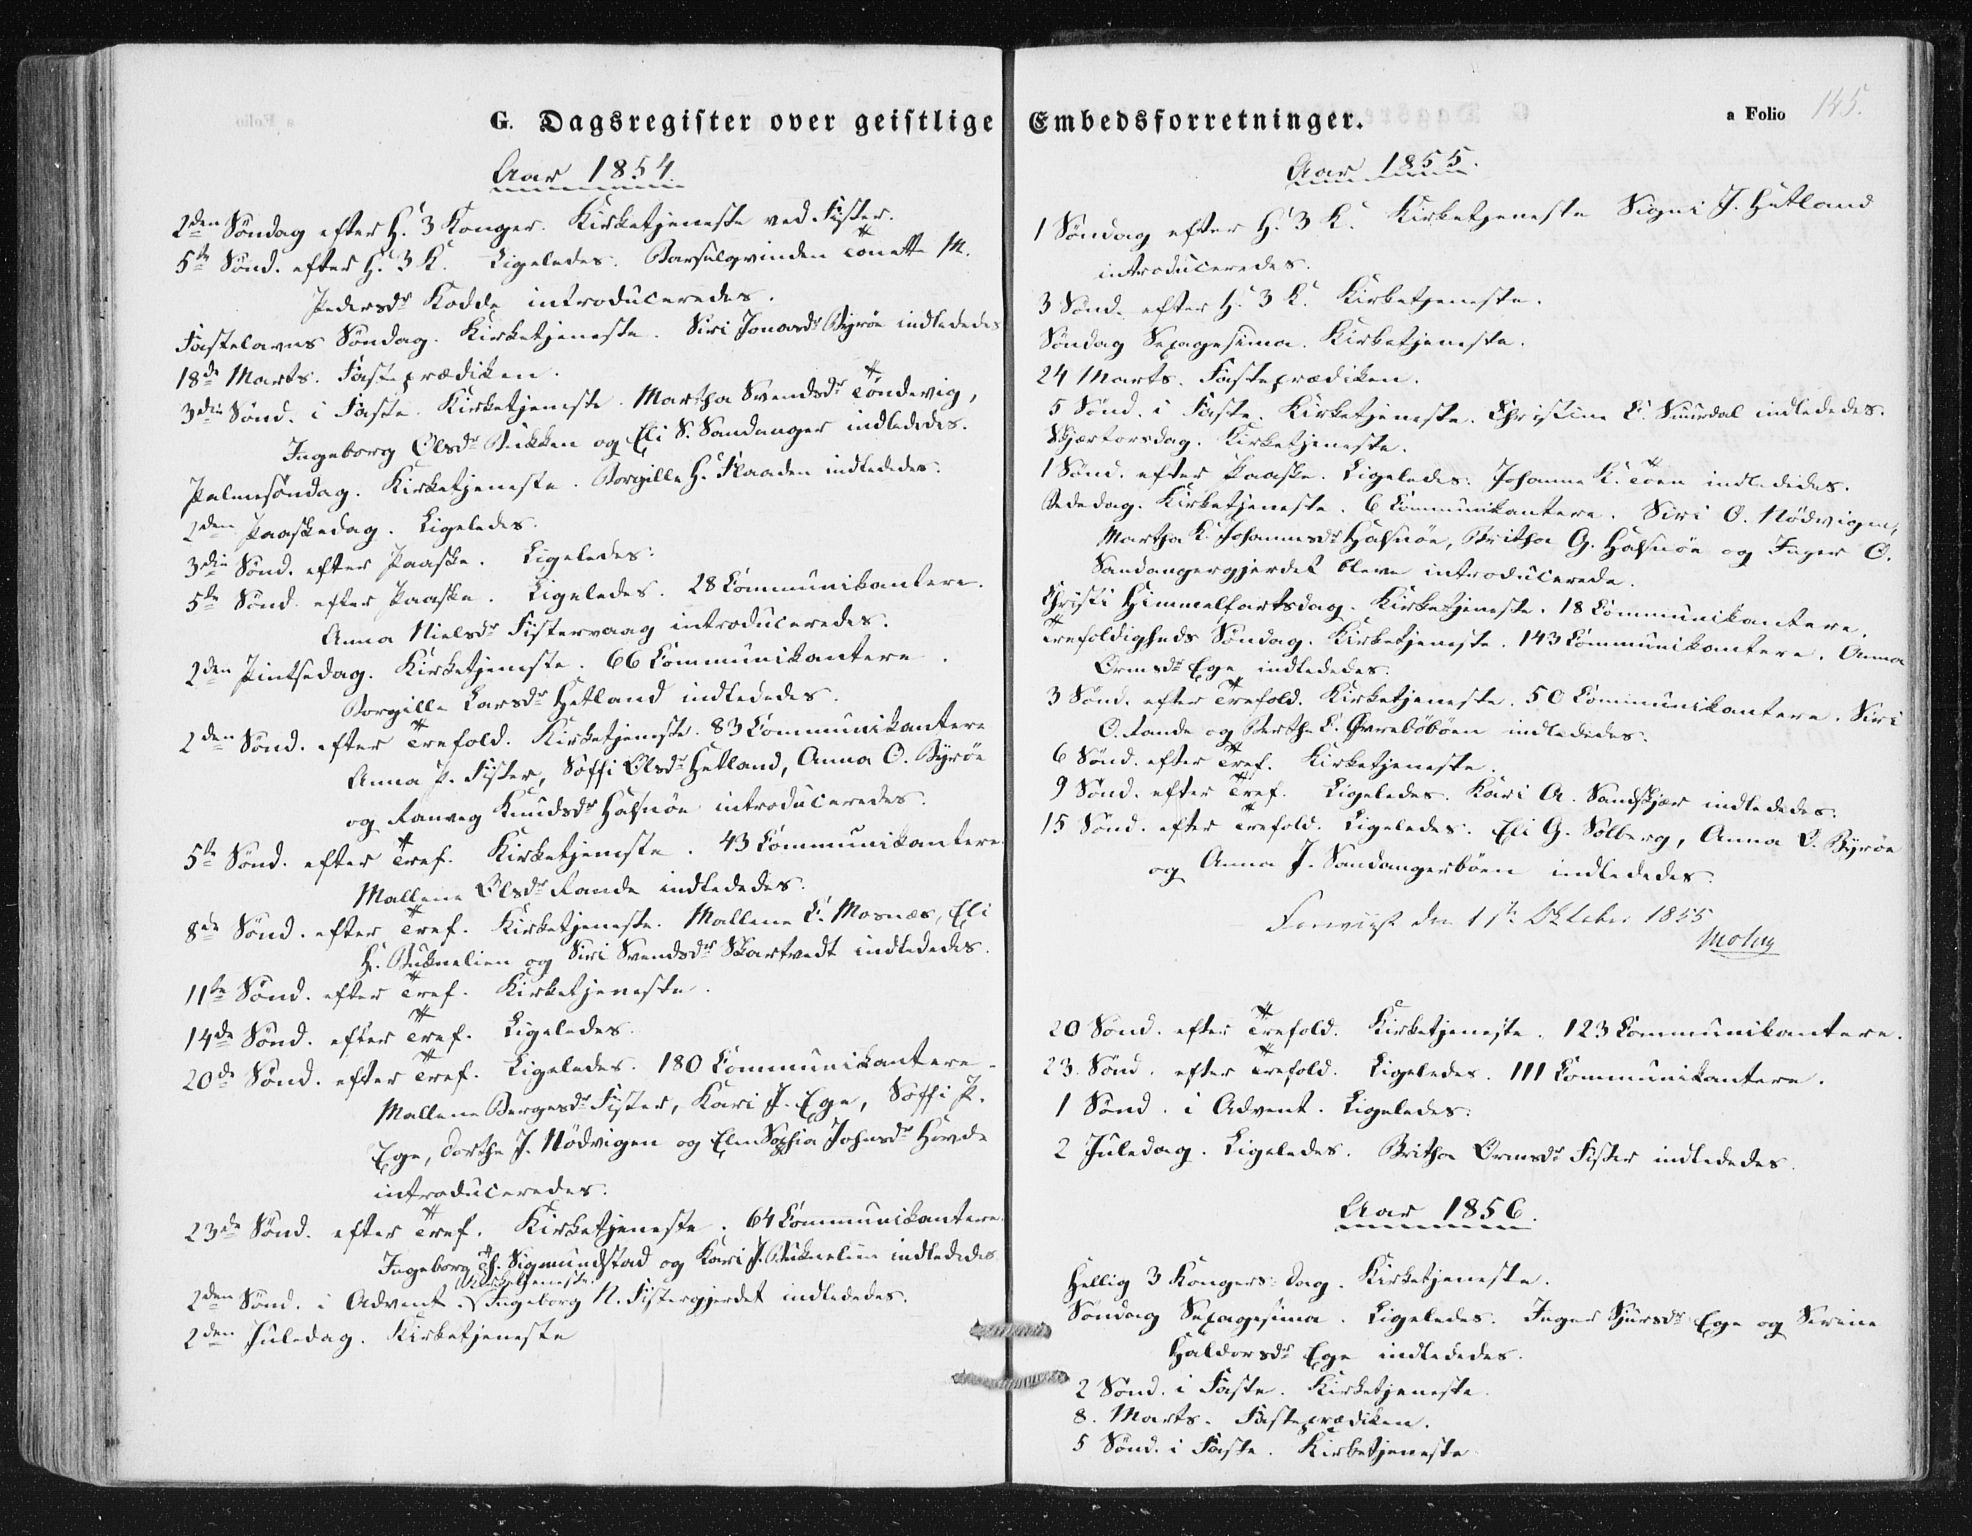 G. Dagsregister over geistlige Embedsforretninger.
a Folio 145.
Aar 1854.
2den Søndag efter H. 3 Konger. Kirketjeneste ved Fister.
5te Sønd. efter H. 3 K. Ligeledes. Barselqvinden Tonette M.
Pedersdr Kodde introduceredes.
Fastelavns Søndag. Kirketjeneste. Siri Jonasdr Byrøe indlededes
18de Marts. Fasteprædiken.
3die Sønd. i Faste. Kirketjeneste. Martha Svendsdr Tøndevig,
Ingeborg Olsdr Bukken og Eli S. Sandanger indlededes.
Palmesøndag. Kirketjeneste. Borgille H. Flaaden indlededes.
2den Paaskedag. Ligeledes.
3die Sønd. efter Paaske. Ligeledes.
5te Sønd. efter Paaske. Ligeledes. 28 Communikantere.
Anna Nielsdr Fistervaag introduceredes.
2den Pintsedag. Kirketjeneste. 66 Communikantere.
Borgille Larsdr Hetland indlededes.
2den Sønd. efter Trefold. Kirketjeneste. 83 Communikantere
Anna P. Fister, Søffi Olsdr Hetland, Anna O. Byrøe
og Ranveg Knudsdr Halsnøe introduceredes.
5te Sønd. efter Tref. Kirketjeneste. 43 Communikantere
Mallene Olsdr Rande indlededes.
8de Sønd. efter Tref. Kirketjeneste. Mallene L. Mosnæs, Eli
H. Bukkelien og Siri Svendsdr Skartvedt indlededes.
11te Sønd. efter Tref. Kirketjeneste.
14de Sønd. efter Tref. Ligeledes.
20de Sønd. efter Tref. Ligeledes. 180 Communikantere.
Mallene Bergesdr Fister, Kari J. Ege, Søffi P.
Ege, Dorthe J. Nødvigen og Elen Sophia Johnsdr Hovde
introduceredes.
23de Sønd. efter Tref. Kirketjeneste. 64 Communikantere.
Ingeborg Th. Sigmundstad og Kari J. Bukkelien indlededes
Kirketjeneste.
2den Sønd. i Advent. Ingeborg N. Fistergjerdet indlededes.
2den Juledag. Kirketjeneste
Aar 1855.
1 Søndag efter H. 3 K. Kirketjeneste Signi J. Hetland
introduceredes.
3 Sønd. efter H. 3 K. Kirketjeneste.
Søndag Sexagesima. Kirketjeneste.
24 Marts. Fasteprædiken.
5 Sønd. i Faste. Kirketjeneste. Christine E. indlededes.
Skjærtorsdag. Kirketjeneste.
1 Sønd. efter Paaske. Ligeledes. Johanne K. Tøen indlededes.
Bededag. Kirketjeneste. 6 Communikantere. Siri O. Nødvigen,
Martha K. Johannesdr Halsnøe, Britha G. Halsnøe og Inger O.
Sandangergjerdet bleve introducerede.
Christi Himmelfartsdag. Kirketjeneste. 18 Communikantere.
Trefoldigheds Søndag. Kirketjeneste. 143 Communikantere. Anna
Ormsdr Ege indlededes.
3 Sønd. efter Trefold. Kirketjeneste. 50 Communikantere. Siri
O. Rande og Berthe L. Øvrebøbøen indlededes.
6 Sønd. efter Tref. Kirketjeneste.
9 Sønd. efter Tref. Ligeledes. Kari A. Sandskjær indlededes.
15 Sønd. efter Trefold. Ligeledes. Eli G. Solberg, Anna O. Byrøe
og Anna J. Sandangerbøen indlededes.
Foreviist den 1ste Oktober 1855

20 Sønd. efter Trefold. Kirketjeneste. 123 Communikantere.
23. Sønd. efter Trefold. Ligeledes. 111 Communikantere.
1 Sønd. i Advent. Ligeledes.
2 Juledag. Ligeledes. Britha Ormsdr Fister indlededes.
Aar 1856.
Hellig 3 Kongers Dag. Kirketjeneste.
Søndag Sexagesima. Ligeledes. Inger Sjursdr Ege og Serine
Haldorsdr Ege indlededes.
2 Sønd. i Faste. Kirketjeneste.
8. Marts. Fasteprædiken.
5 Sønd. i Faste. Kirketjeneste